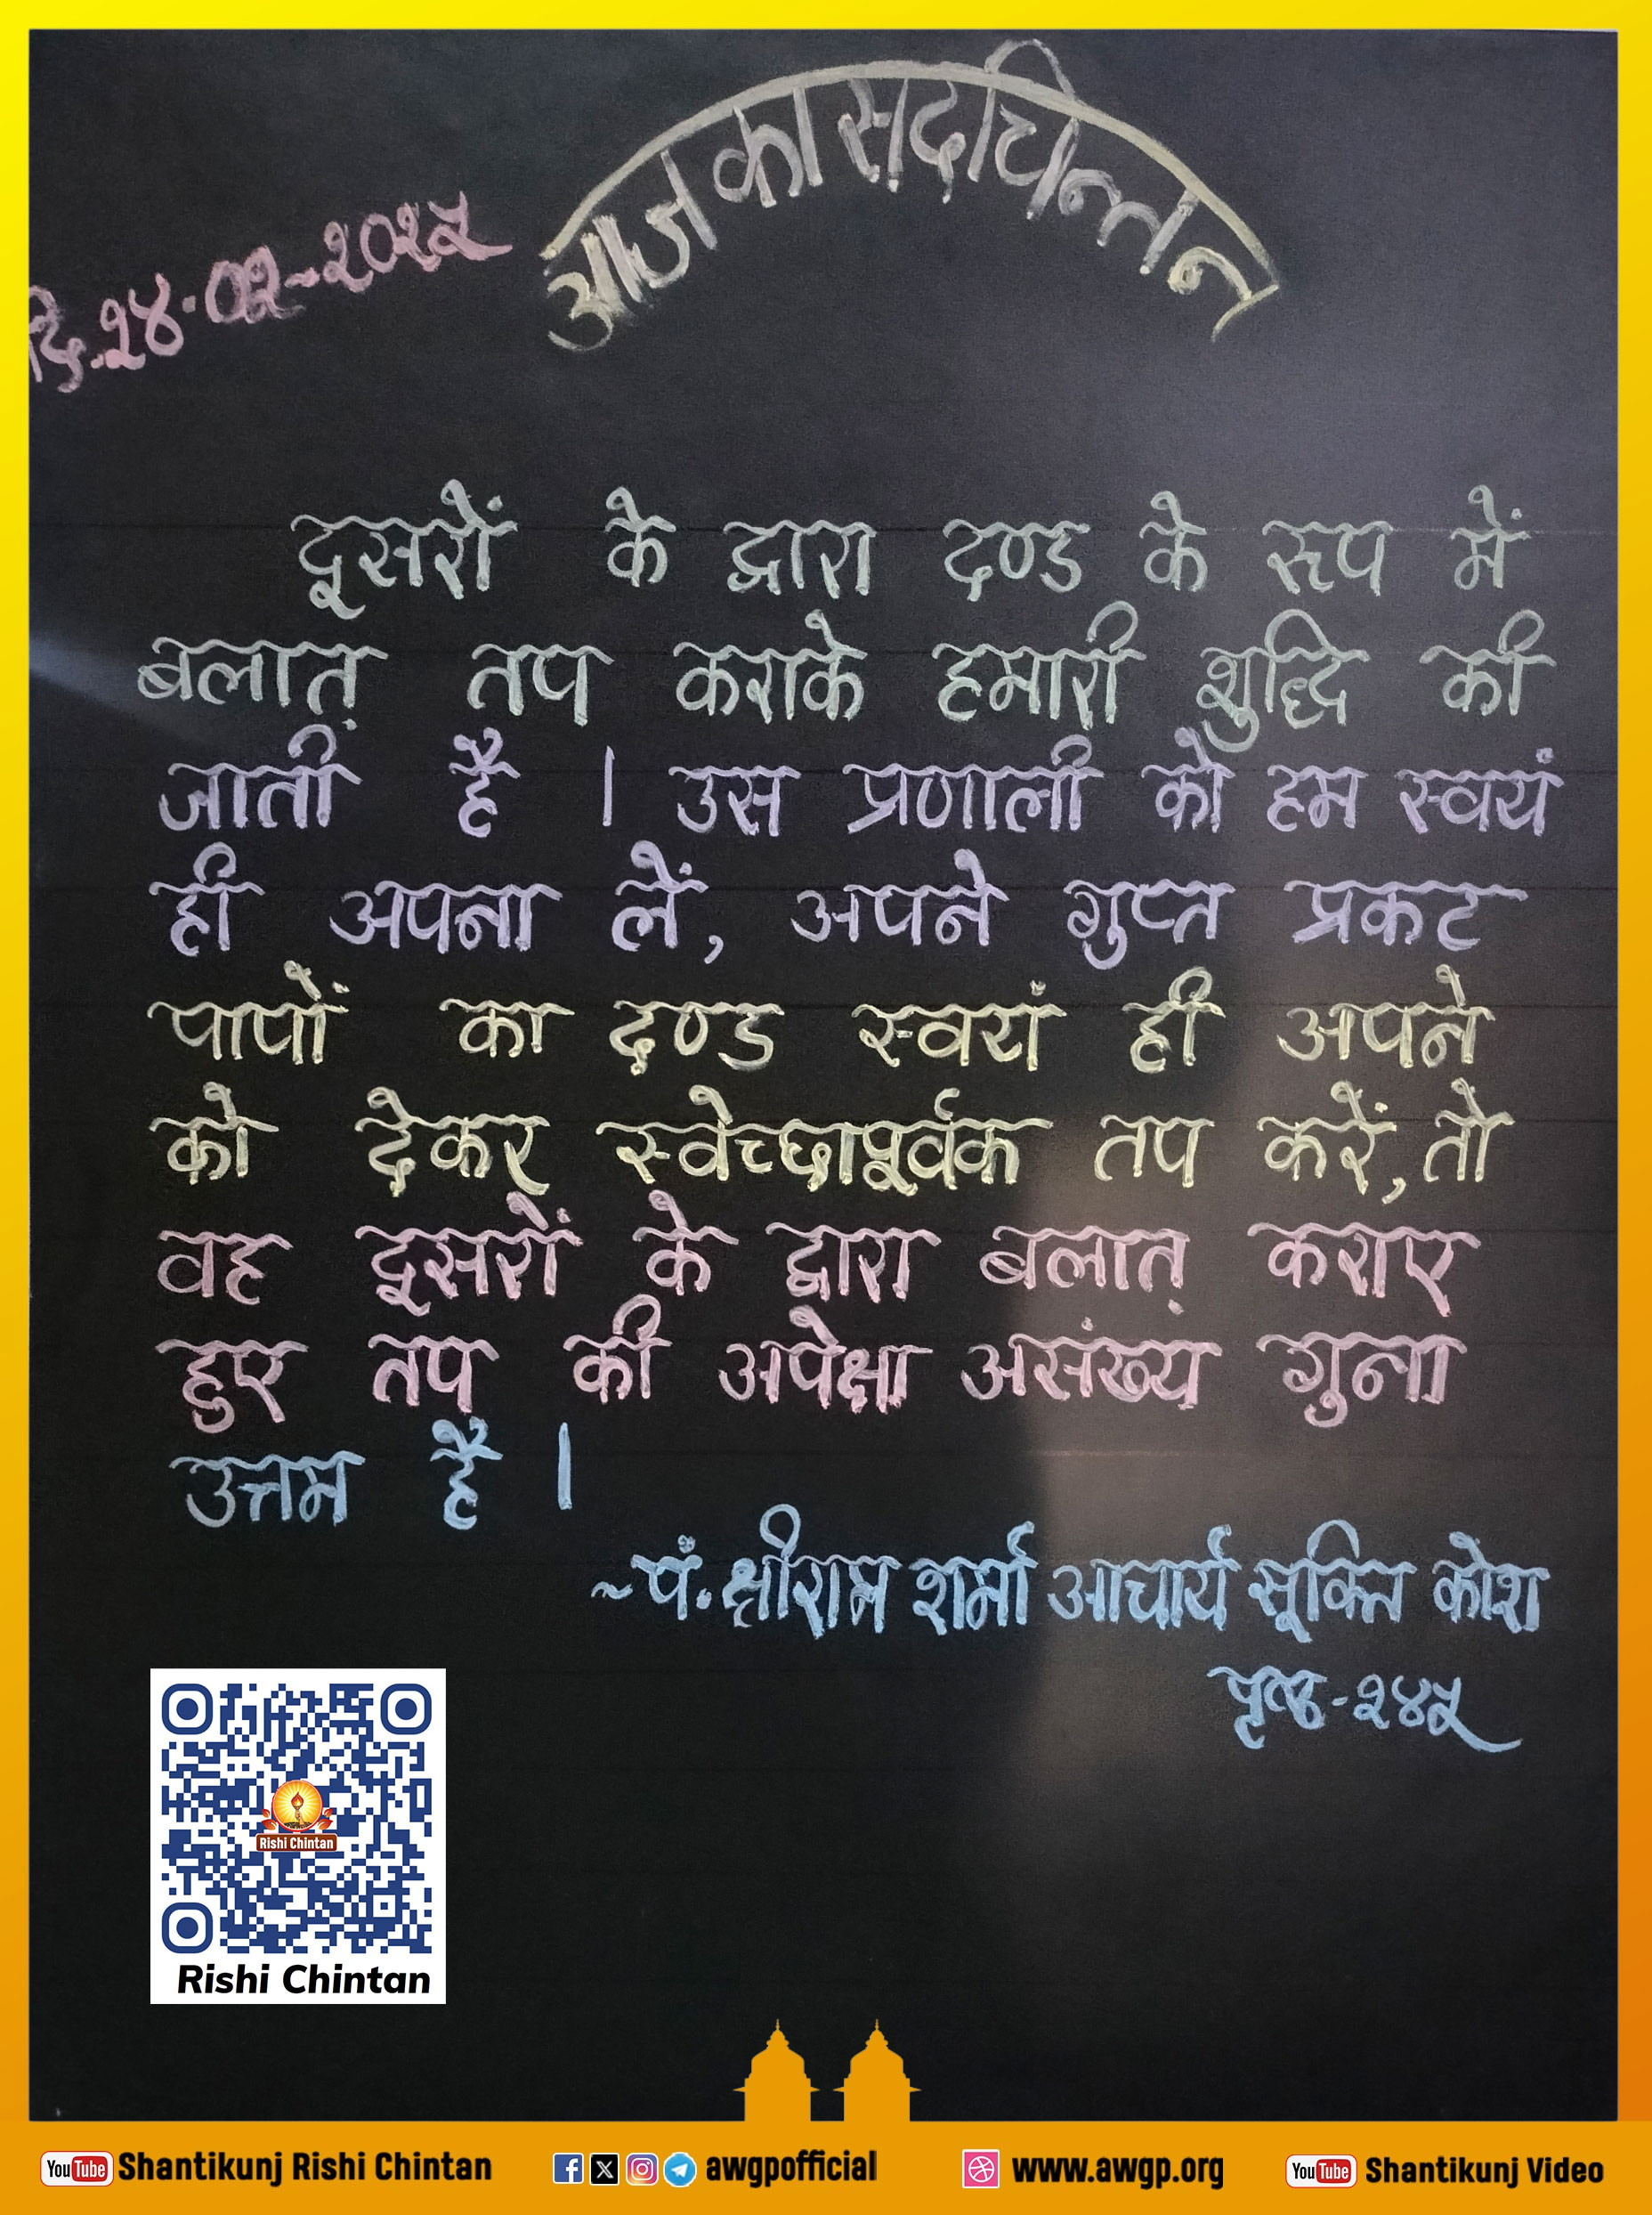 आज का सद्चिन्तन
दि.२४.०२-२०२५
दूसरों के द्वारा दण्ड के रूप में
बलात् तप कराके हमारी शुद्धि की
जाती है । उस प्रणाली को हम स्वयं
ही अपना लें, अपने गुप्त प्रकट
पापों का दण्ड स्वयं ही अपने
को देकर स्वेच्छापूर्वक तप करें, तो
वह दूसरों के द्वारा बलात् कराए
हुए तप की अपेक्षा असंख्य गुना
उत्तम है ।
~पं. श्रीराम शर्मा आचार्य सूक्ति कोश
पृष्ठ-२४५
Rishi Chintan
Rishi Chintan
YouTube Shantikunj Rishi Chintan awgpofficial www.awgp.org YouTube Shantikunj Video